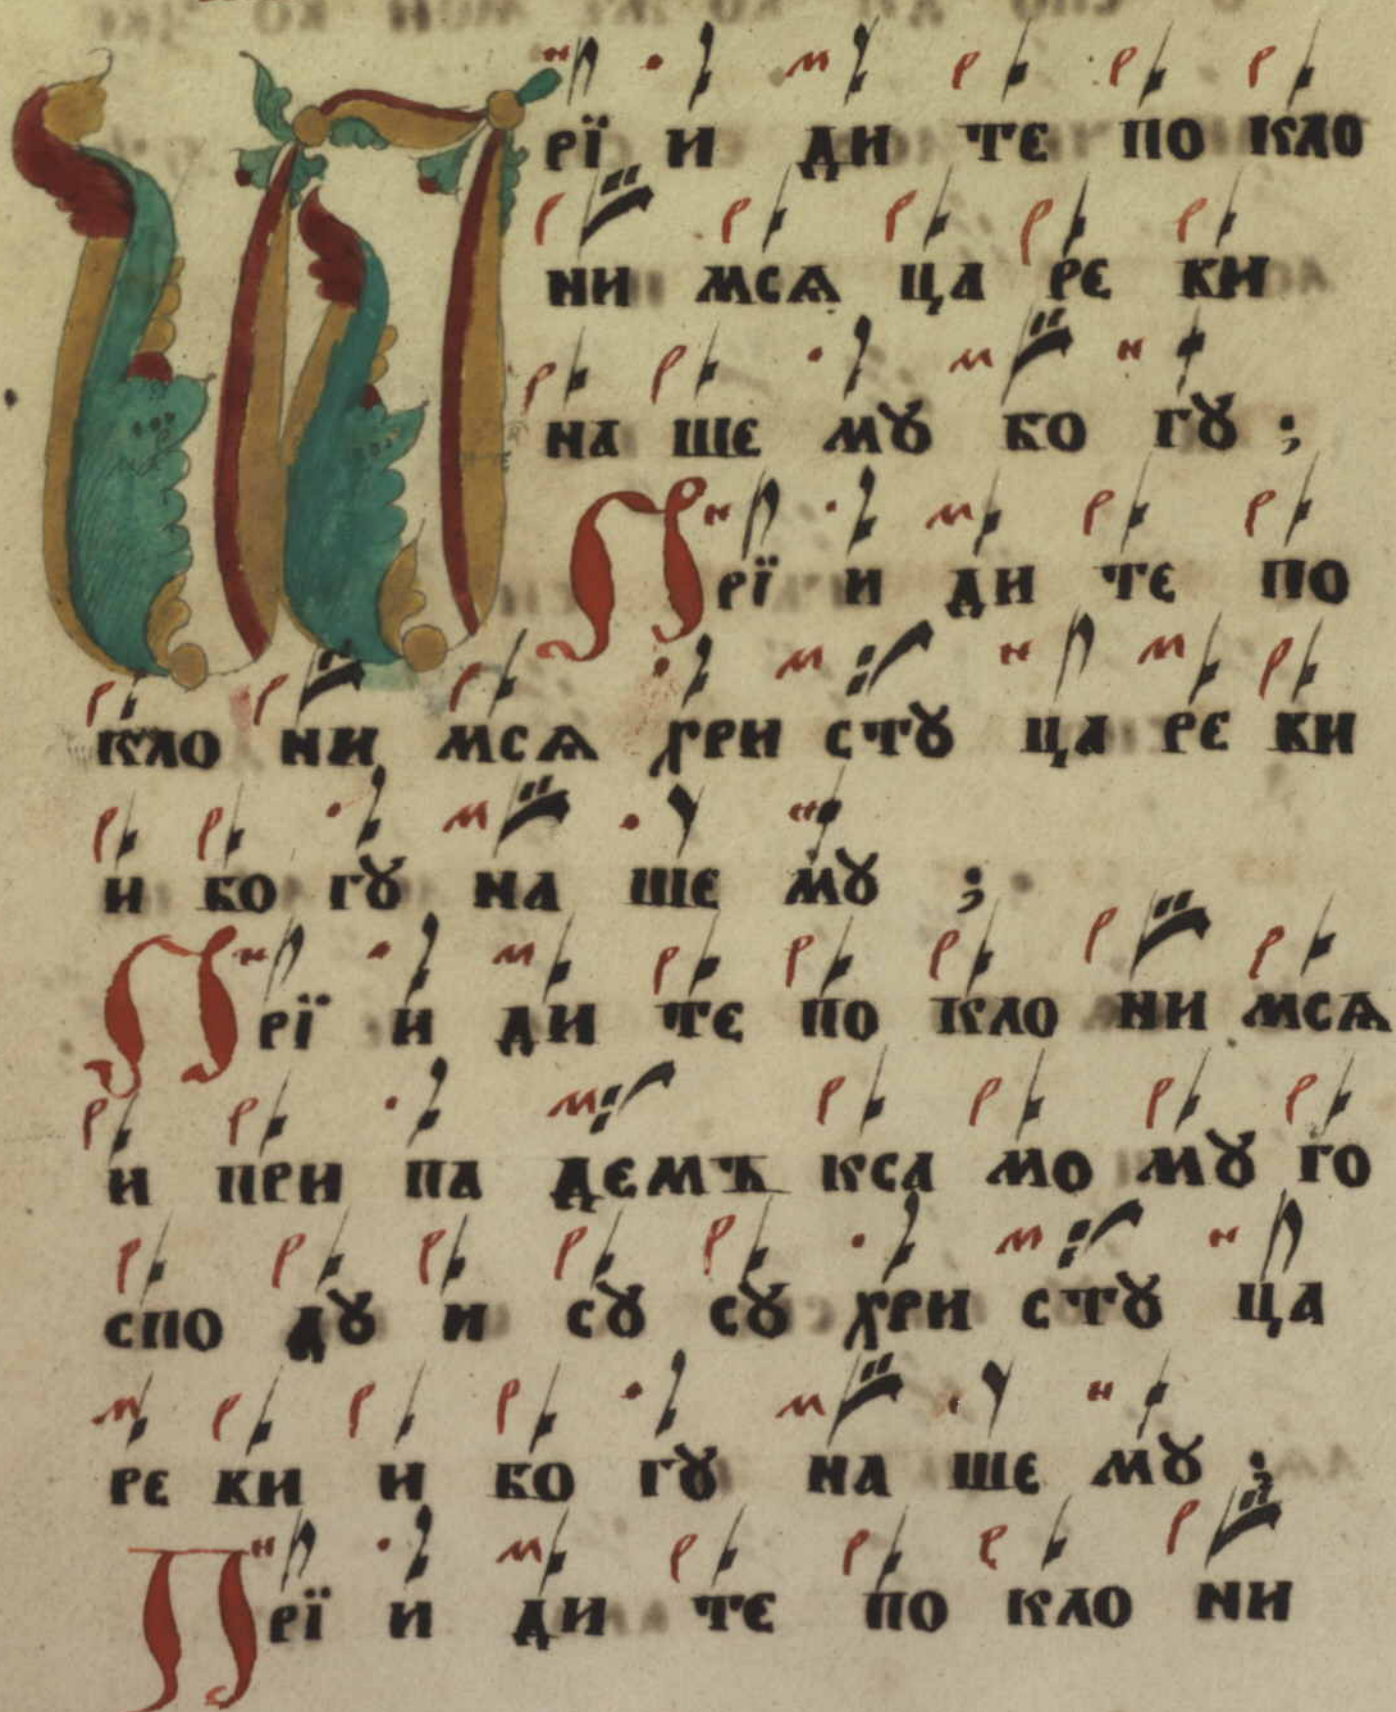 Прї и ди те по кло
ни мсѧ ца ре ви
на ше мꙋ бо гꙋ ;
Прї и ди те по
кло ни мсѧ хри стꙋ ца ре ви
и бо гꙋ на ше мꙋ ;
Прї и ди те по кло ни мсѧ
и при па демъ кса мо мꙋ го
спо дꙋ и сꙋ сꙋ хри стꙋ ца
ре ви и бо гꙋ на ше мꙋ ;
Прї и ди те по кло ни